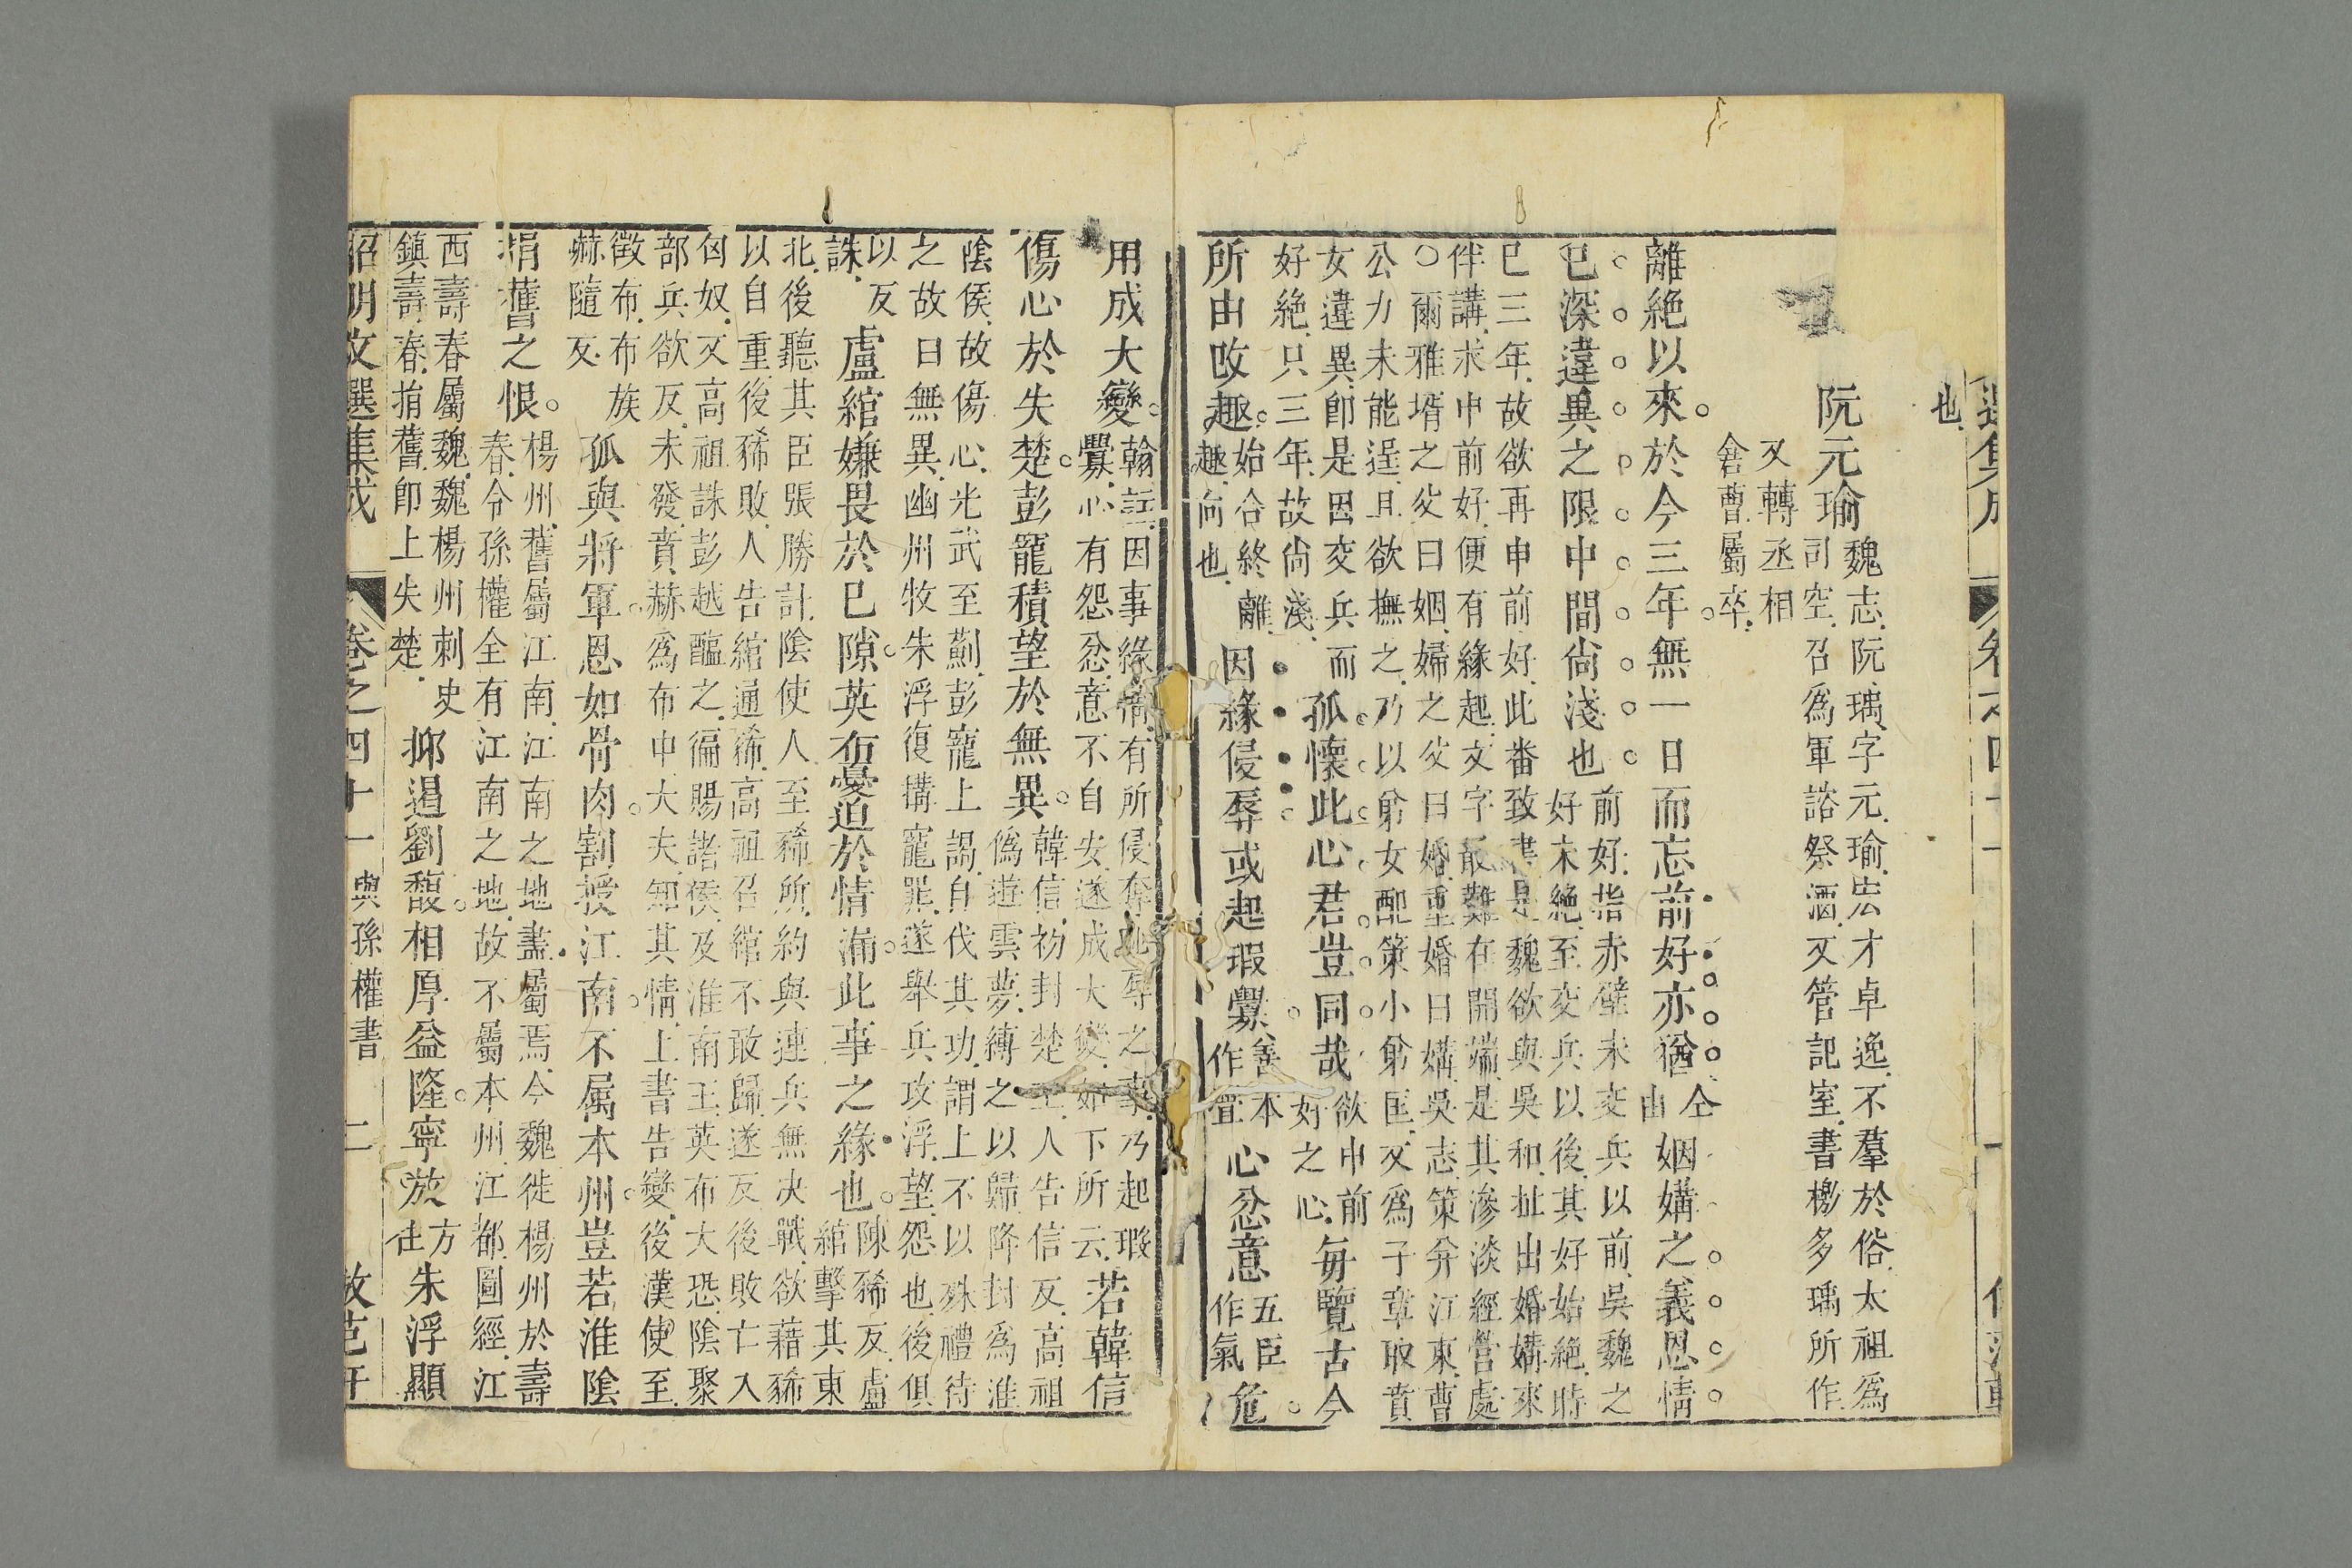 也
阮元瑜魏志阮瑀字元瑜宏才卓逸不羣於俗太祖爲
司空召爲軍謀祭酒又管記室書檄多瑀所作
又轉丞相
倉曹屬卒
離絶以來於今三年無一日而忘前好亦猶仝由姻媾之義恩情
已深違異之限中間尙淺也前好指赤壁未交兵以前吳魏之
好未絶至交兵以後其好始絶時
已三年故欲再申前好此番致書是魏欲與吳和扯出婚媾來
伴講求申前好便有緣起文字最難在開端是其滲淡經營處
○爾雅壻之父曰姻婦之父曰婚重婚曰媾吳志策弁江東曹
公力未能逞且欲撫之乃以弟女配策小弟匡又爲子章取賁
女違異卽是因交兵而
好絶只三年故尙淺
孤懷此心君豈同哉欲申前
好之心
每覽古今
所由攺趣始合終離
趣向也
因緣侵辱或起瑕釁善本
作舋
心忿意五臣
作氣
危
用成大變翰註因事緣情有所侵奔恥辱之事乃起瑕
釁心有怨忿意不自安遂成大變如下所云
若韓信
傷心於失楚彭寵積望於無異韓信初封楚王人告信反高祖
僞遊雲夢縛之以歸降封爲淮
陰侯故傷心光武至薊彭寵上謁自伐其功謂上不以殊禮待
之故曰無異幽州牧朱浮復搆寵罪遂舉兵攻浮望怨也後俱
以反
誅
盧綰嫌畏於已隙英布憂迫於情漏此事之緣也陳豨反盧
綰擊其東
北後聽其臣張勝計陰使人至豨所約與連兵無决戰欲藉豨
以自重後豨敗人告綰通豨高祖召綰不敢歸遂反後敗亡入
匈奴又高祖誅彭越醢之徧賜諸侯及淮南王英布大恐陰聚
部兵欲反未發賁赫爲布中大夫知其情上書告變後漢使至
徵布布族
赫隨反
孤與將軍恩如骨肉割授江南不屬本州豈若淮陰
捐舊之恨楊州舊屬江南江南之地盡屬焉今魏徙楊州於壽
春令孫權全有江南之地故不屬本州江都圖經江
西壽春屬魏魏楊州刺史
鎮壽春捐舊卽上失楚
抑遏劉馥相厚益隆寧放方
往
朱浮顯
昭明文選集成 卷之四十一 與孫權書 二